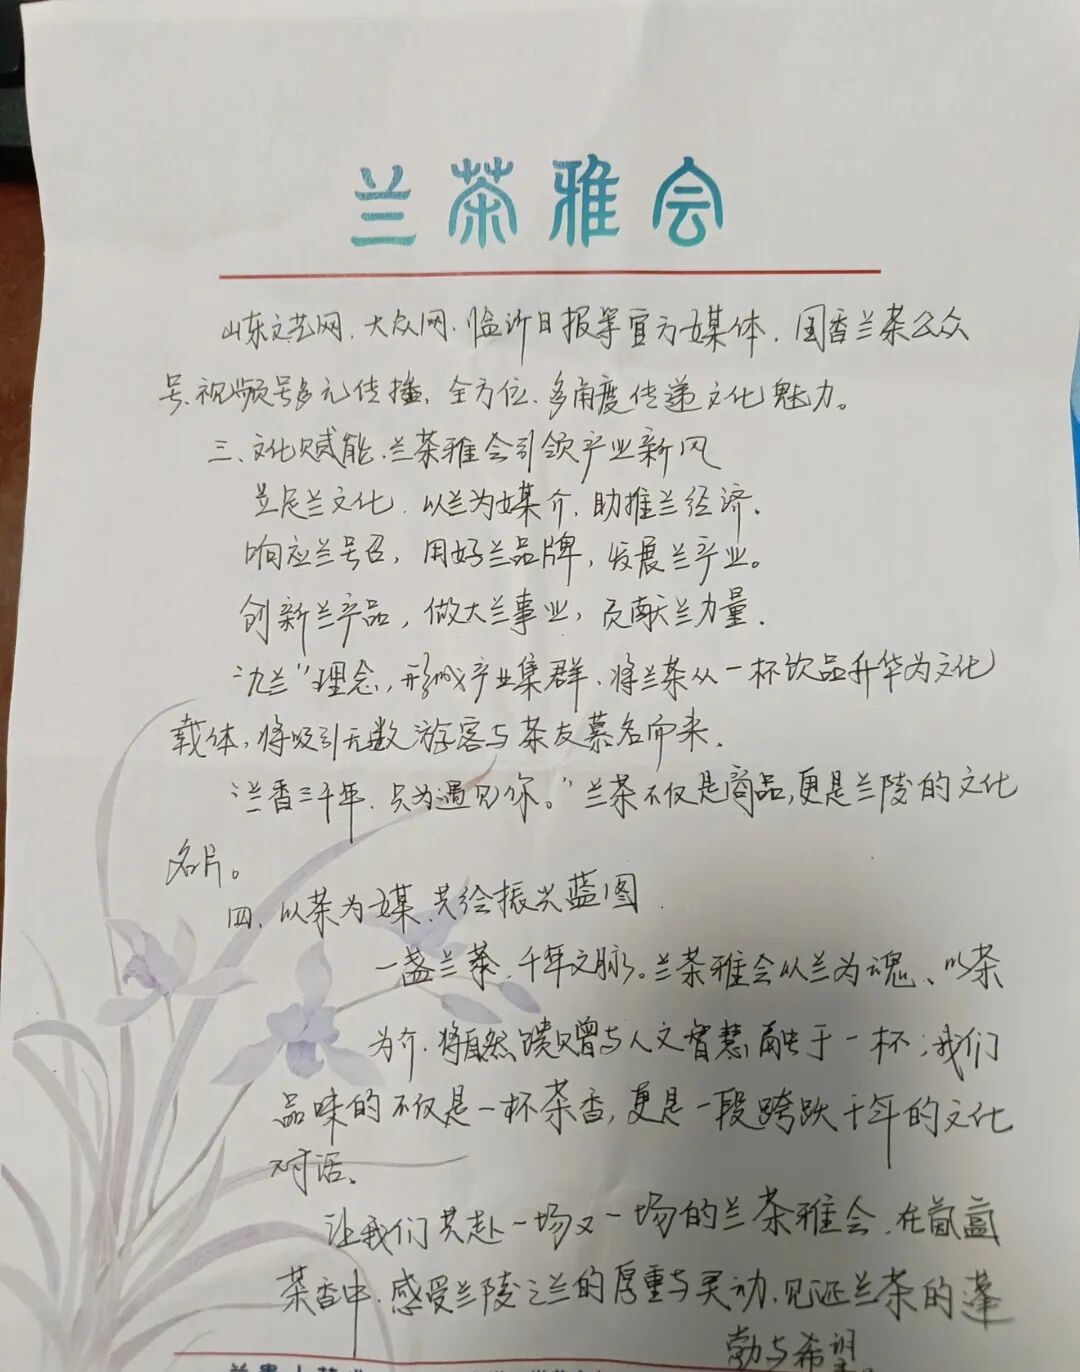 兰茶雅会
山东文艺网、大众网、临沂日报等官方媒体,国香兰茶公众
号、视频号多元传播,全方位、多角度传递文化魅力。
三、文化赋能、兰茶雅会引领产业新风
立足兰文化,以兰为媒介,助推兰经济、
响应兰号召,用好兰品牌,发展兰产业。
创新兰产品,做大兰事业,贡献兰力量.
"九兰"理念,形成产业集群,将兰茶从一杯饮品升华为文化
载体,将吸引无数游客与茶友慕名而来.
"兰香三千年,只为遇见你。"兰茶不仅是商品,更是兰陵的文化
名片。
四、以茶为媒 共绘振兴蓝图
一盏兰茶,千年文脉。兰茶雅会以兰为魂、以茶
为介,将自然馈赠与人文智慧融于一杯;我们
品味的不仅是一杯茶香,更是一段跨跃千年的文化
对话。
让我们共赴一场又一场的兰茶雅会,在氤氲
茶香中,感受兰陵之兰的厚重与灵动,见证兰茶的蓬
勃与希望